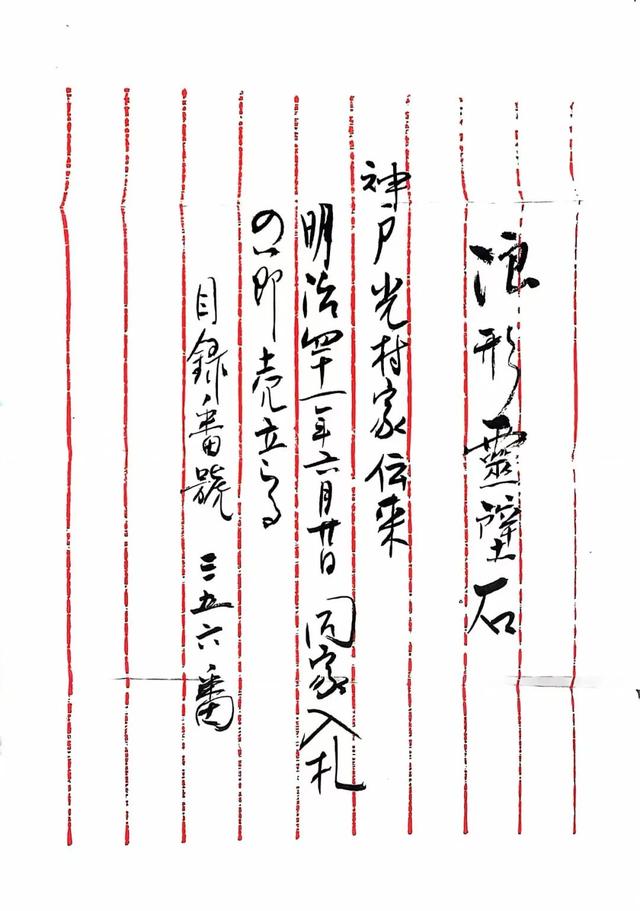 浪形靈壁石
神戸光村家伝来
明治四十一年六月廿日 同家入札
の節売立らる
目録番號 三五六番